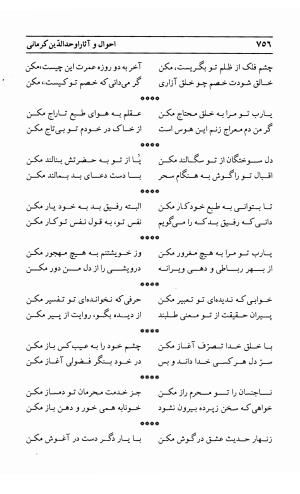 ۷۵۶ احوال و آثار اوحدالدّین کرمانی
چشم فلک از ظلم تو بگریست، مکن آخر به دو روزه عمرت این چیست، مکن
خالق شودت خصم چو خلق آزاری گر می‌دانی که خصم تو کیست، مکن
****
یارب تو مرا به خلق محتاج مکن عقلم به هوای طبع تاراج مکن
گر من دم معراج زنم این هوس است از خاک در خودم تو بی تاج مکن
****
دل سوختگان از تو بنالند مکن تا از تو به حضرتش بنالند مکن
اقبال تو را گوش به هنگام سحر با دست دعای بد بمالند مکن
****
تا بتوانی به طبع خود کار مکن البته رفیق بد به خود یار مکن
دانی که رفیق بد که را می‌گویم نفس تو، به قول نفس تو کار مکن
****
یارب تو مرا به هیچ مغرور مکن وز خویشتنم به هیچ مهجور مکن
از بهر رباطی و دهی ویرانه درویشی را از دل من دور مکن
****
خوابی که ندیده‌ای تو تعبیر مکن حرفی که نخوانده‌ای تو تفسیر مکن
پیران حقیقت از تو معنی طلبند از دیده بگو، روایت از پیر مکن
****
با خلق خدا تصرّف آغاز مکن چشم خود را به عیب کس باز مکن
سرّ دل هر کسی خدا داند و بس در خود بنگر فضولی آغاز مکن
****
ناجنسان را تو محرم راز مکن جز خدمت محرمان تو دمساز مکن
خواهی که سخن ز پرده بیرون نشود خونابه همی خور و دهن باز مکن
****
زنهار حدیث عشق در گوش مکن با یار دگر دست در آغوش مکن